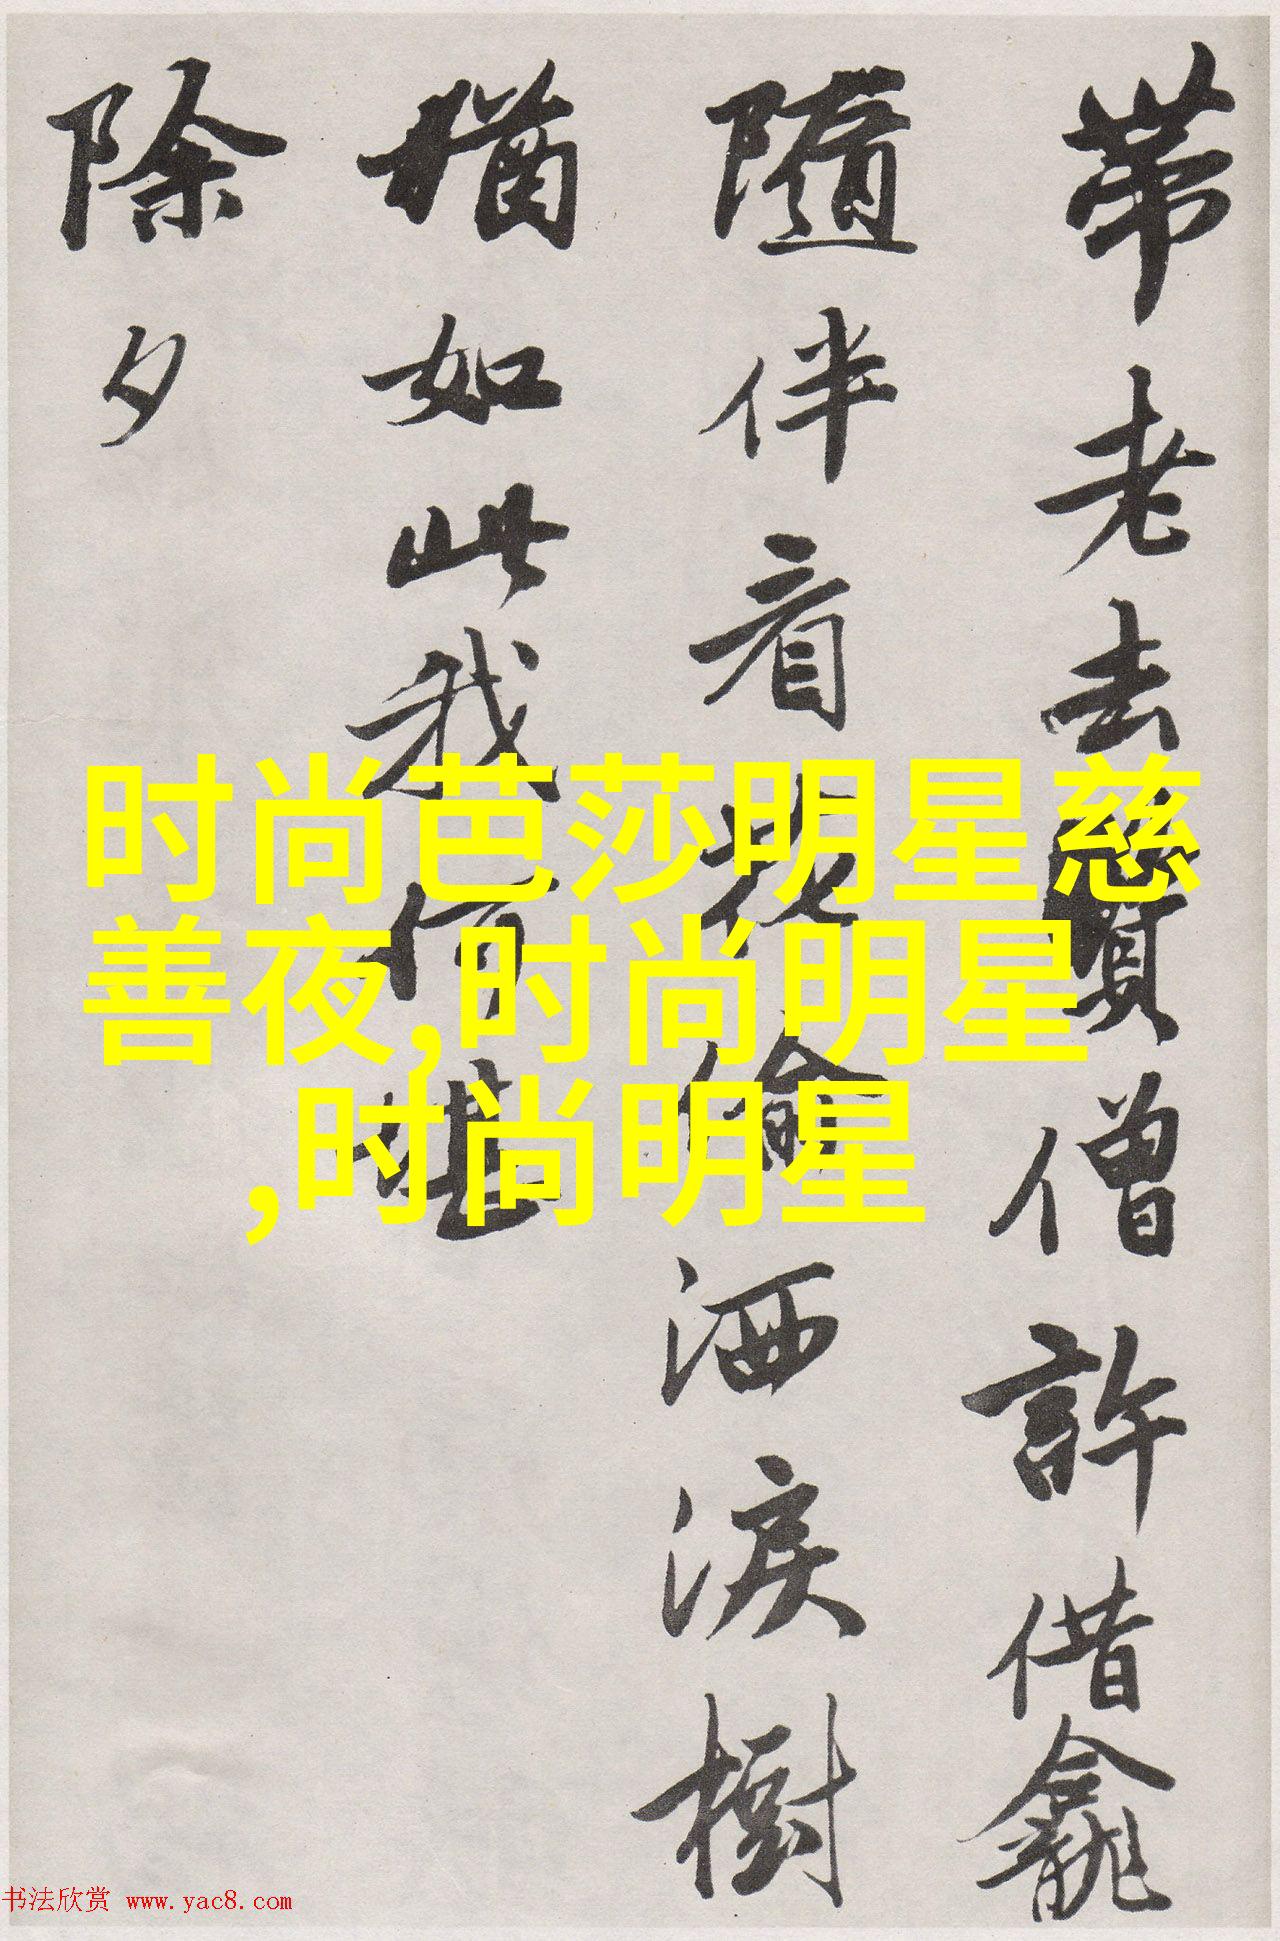 帶老去僧許借龕
隨伴看花偷洒淚樹
猶如此我何堪
除夕
时尚芭莎明星慈
善夜,时尚明星
,时尚明星
书法欣赏 www.yac8.com